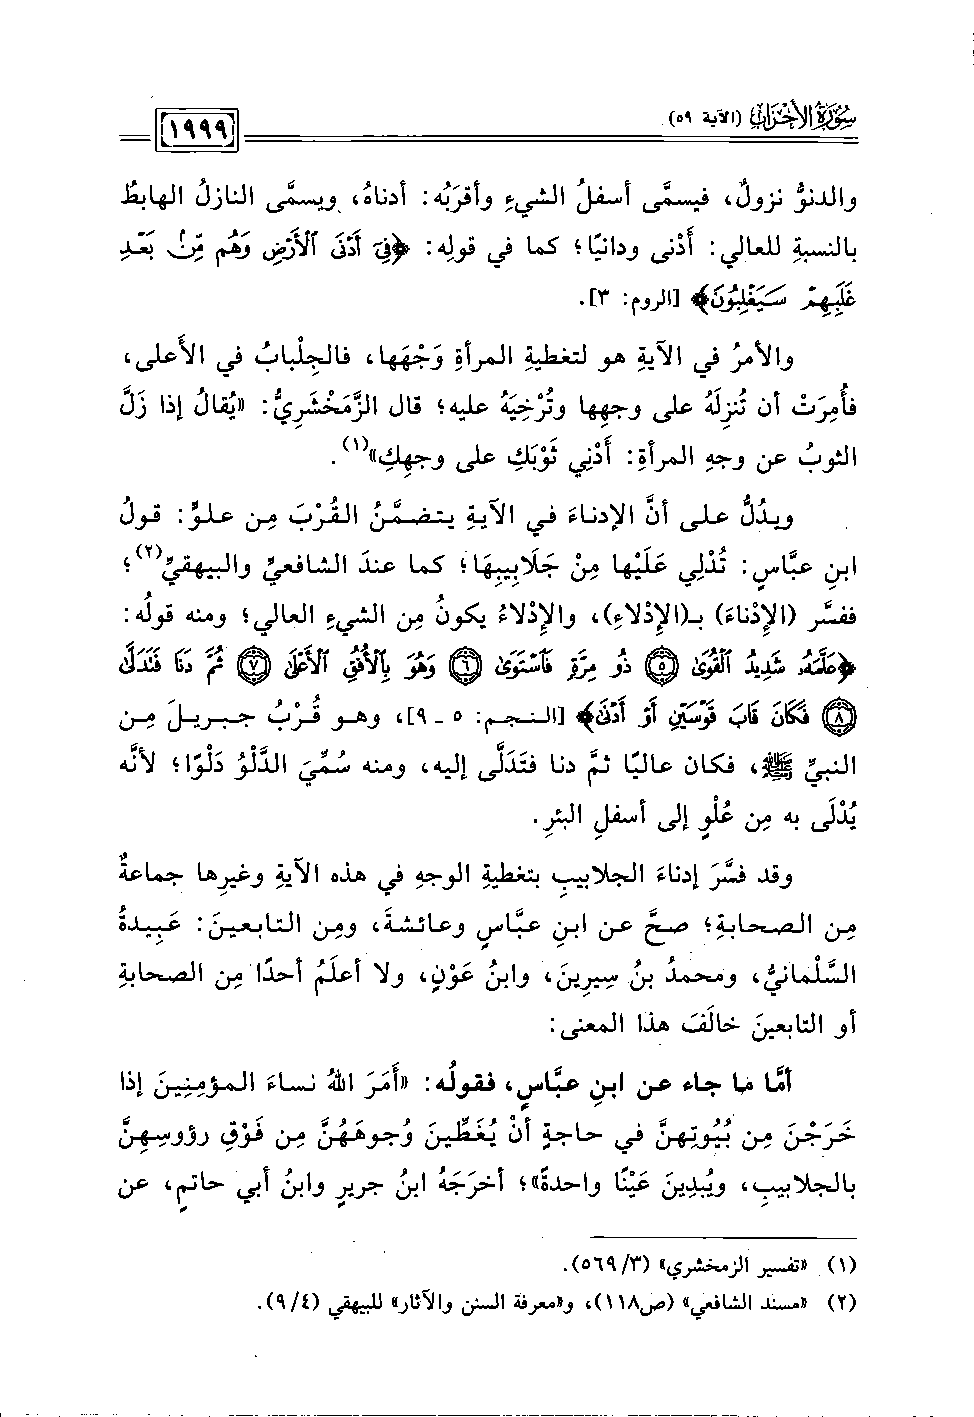 سُورَةُ الأَحْزَابِ (الآية ٥٩)
١٩٩٩
والدنوُّ نزولٌ، فيسمَّى أسفلُ الشيءِ وأقرَبُه: أدناهُ، ويسمَّى النازلُ الهابطُ
بالنسبةِ للعالي: أَدْنى ودانيًا؛ كما في قولِه: ﴿فِىٓ أَدْنَى ٱلْأَرْضِ وَهُم مِّنۢ بَعْدِ
غَلَبِهِمْ سَيَغْلِبُونَ﴾ [الروم: ٣].
والأمرُ في الآيةِ هو لتغطيةِ المرأةِ وَجْهَها، فالجِلْبابُ في الأَعلى،
فأُمِرَتْ أن تُنزِلَهُ على وجهِها وتُرْخِيَهُ عليه؛ قال الزَّمَخْشَريُّ: «يُقالُ إذا زَلَّ
الثوبُ عن وجهِ المرأةِ: أَدْنِي ثَوْبَكِ على وجهِكِ»(١).
ويدُلُّ على أنَّ الإدناءَ في الآيةِ يتضمَّنُ القُرْبَ مِن علوٍّ: قولُ
ابنِ عبَّاسٍ: تُدْلِي عَلَيْها مِنْ جَلَابِيبِهَا؛ كما عندَ الشافعيِّ والبيهقيِّ(٢)؛
ففسَّر (الإِدْناءَ) بـ(الإِدْلاءِ)، والإِدْلاءُ يكونُ مِن الشيءِ العالي؛ ومنه قولُه:
﴿عَلَّمَهُۥ شَدِيدُ ٱلْقُوَىٰ ٥ ذُو مِرَّةٍ فَٱسْتَوَىٰ ٦ وَهُوَ بِٱلْأُفُقِ ٱلْأَعْلَىٰ ٧ ثُمَّ دَنَا فَتَدَلَّىٰ
٨ فَكَانَ قَابَ قَوْسَيْنِ أَوْ أَدْنَىٰ﴾ [النجم: ٥ ـ ٩]، وهو قُرْبُ جبريلَ مِن
النبيِّ ﷺ، فكان عاليًا ثمَّ دنا فتَدَلَّى إليه، ومنه سُمِّيَ الدَّلْوُ دَلْوًا؛ لأنَّه
يُدْلَى به مِن عُلْوٍ إلى أسفلِ البئرِ.
وقد فسَّرَ إدناءَ الجلابيبِ بتغطيةِ الوجهِ في هذه الآيةِ وغيرِها جماعةٌ
مِن الصحابةِ؛ صحَّ عن ابنِ عبَّاسٍ وعائشةَ، ومِن التابعينَ: عَبِيدةُ
السَّلْمانيُّ، ومحمدُ بنُ سِيرِينَ، وابنُ عَوْنٍ، ولا أعلَمُ أحدًا مِن الصحابةِ
أو التابعينَ خالَفَ هذا المعنى:
أمَّا ما جاء عن ابنِ عبَّاسٍ، فقولُه: «أَمَرَ اللهُ نساءَ المؤمنِينَ إذا
خَرَجْنَ مِن بُيُوتِهنَّ في حاجةٍ أنْ يُغَطِّينَ وُجوهَهُنَّ مِن فَوْقِ رؤوسِهنَّ
بالجلابيبِ، ويُبدِينَ عَيْنًا واحدةً»؛ أخرَجَهُ ابنُ جريرٍ وابنُ أبي حاتمٍ، عن
(١) «تفسير الزمخشري» (٣/ ٥٦٩).
(٢) «مسند الشافعي» (ص١١٨)، و«معرفة السنن والآثار» للبيهقي (٤/ ٩).